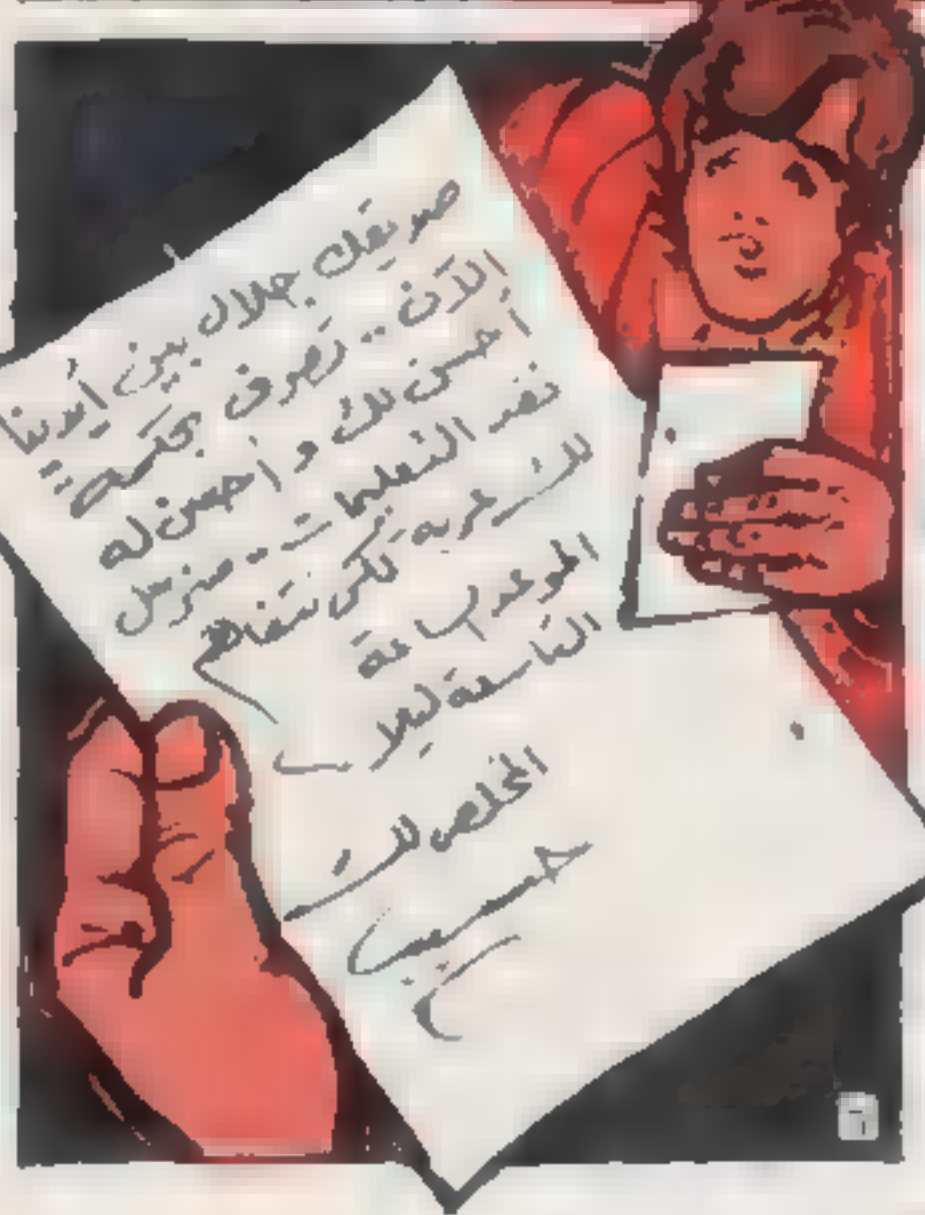 صديقك جلال بين أيدينا
الآن .. تصرف بحكمة
أحسن لك و أحسن له
نفذ التعليمات .. سنرسل
لك عربة لكى نتفاهم
الموعد الساعة
التاسعة ليلا
المخلص لك
حسيب
٦